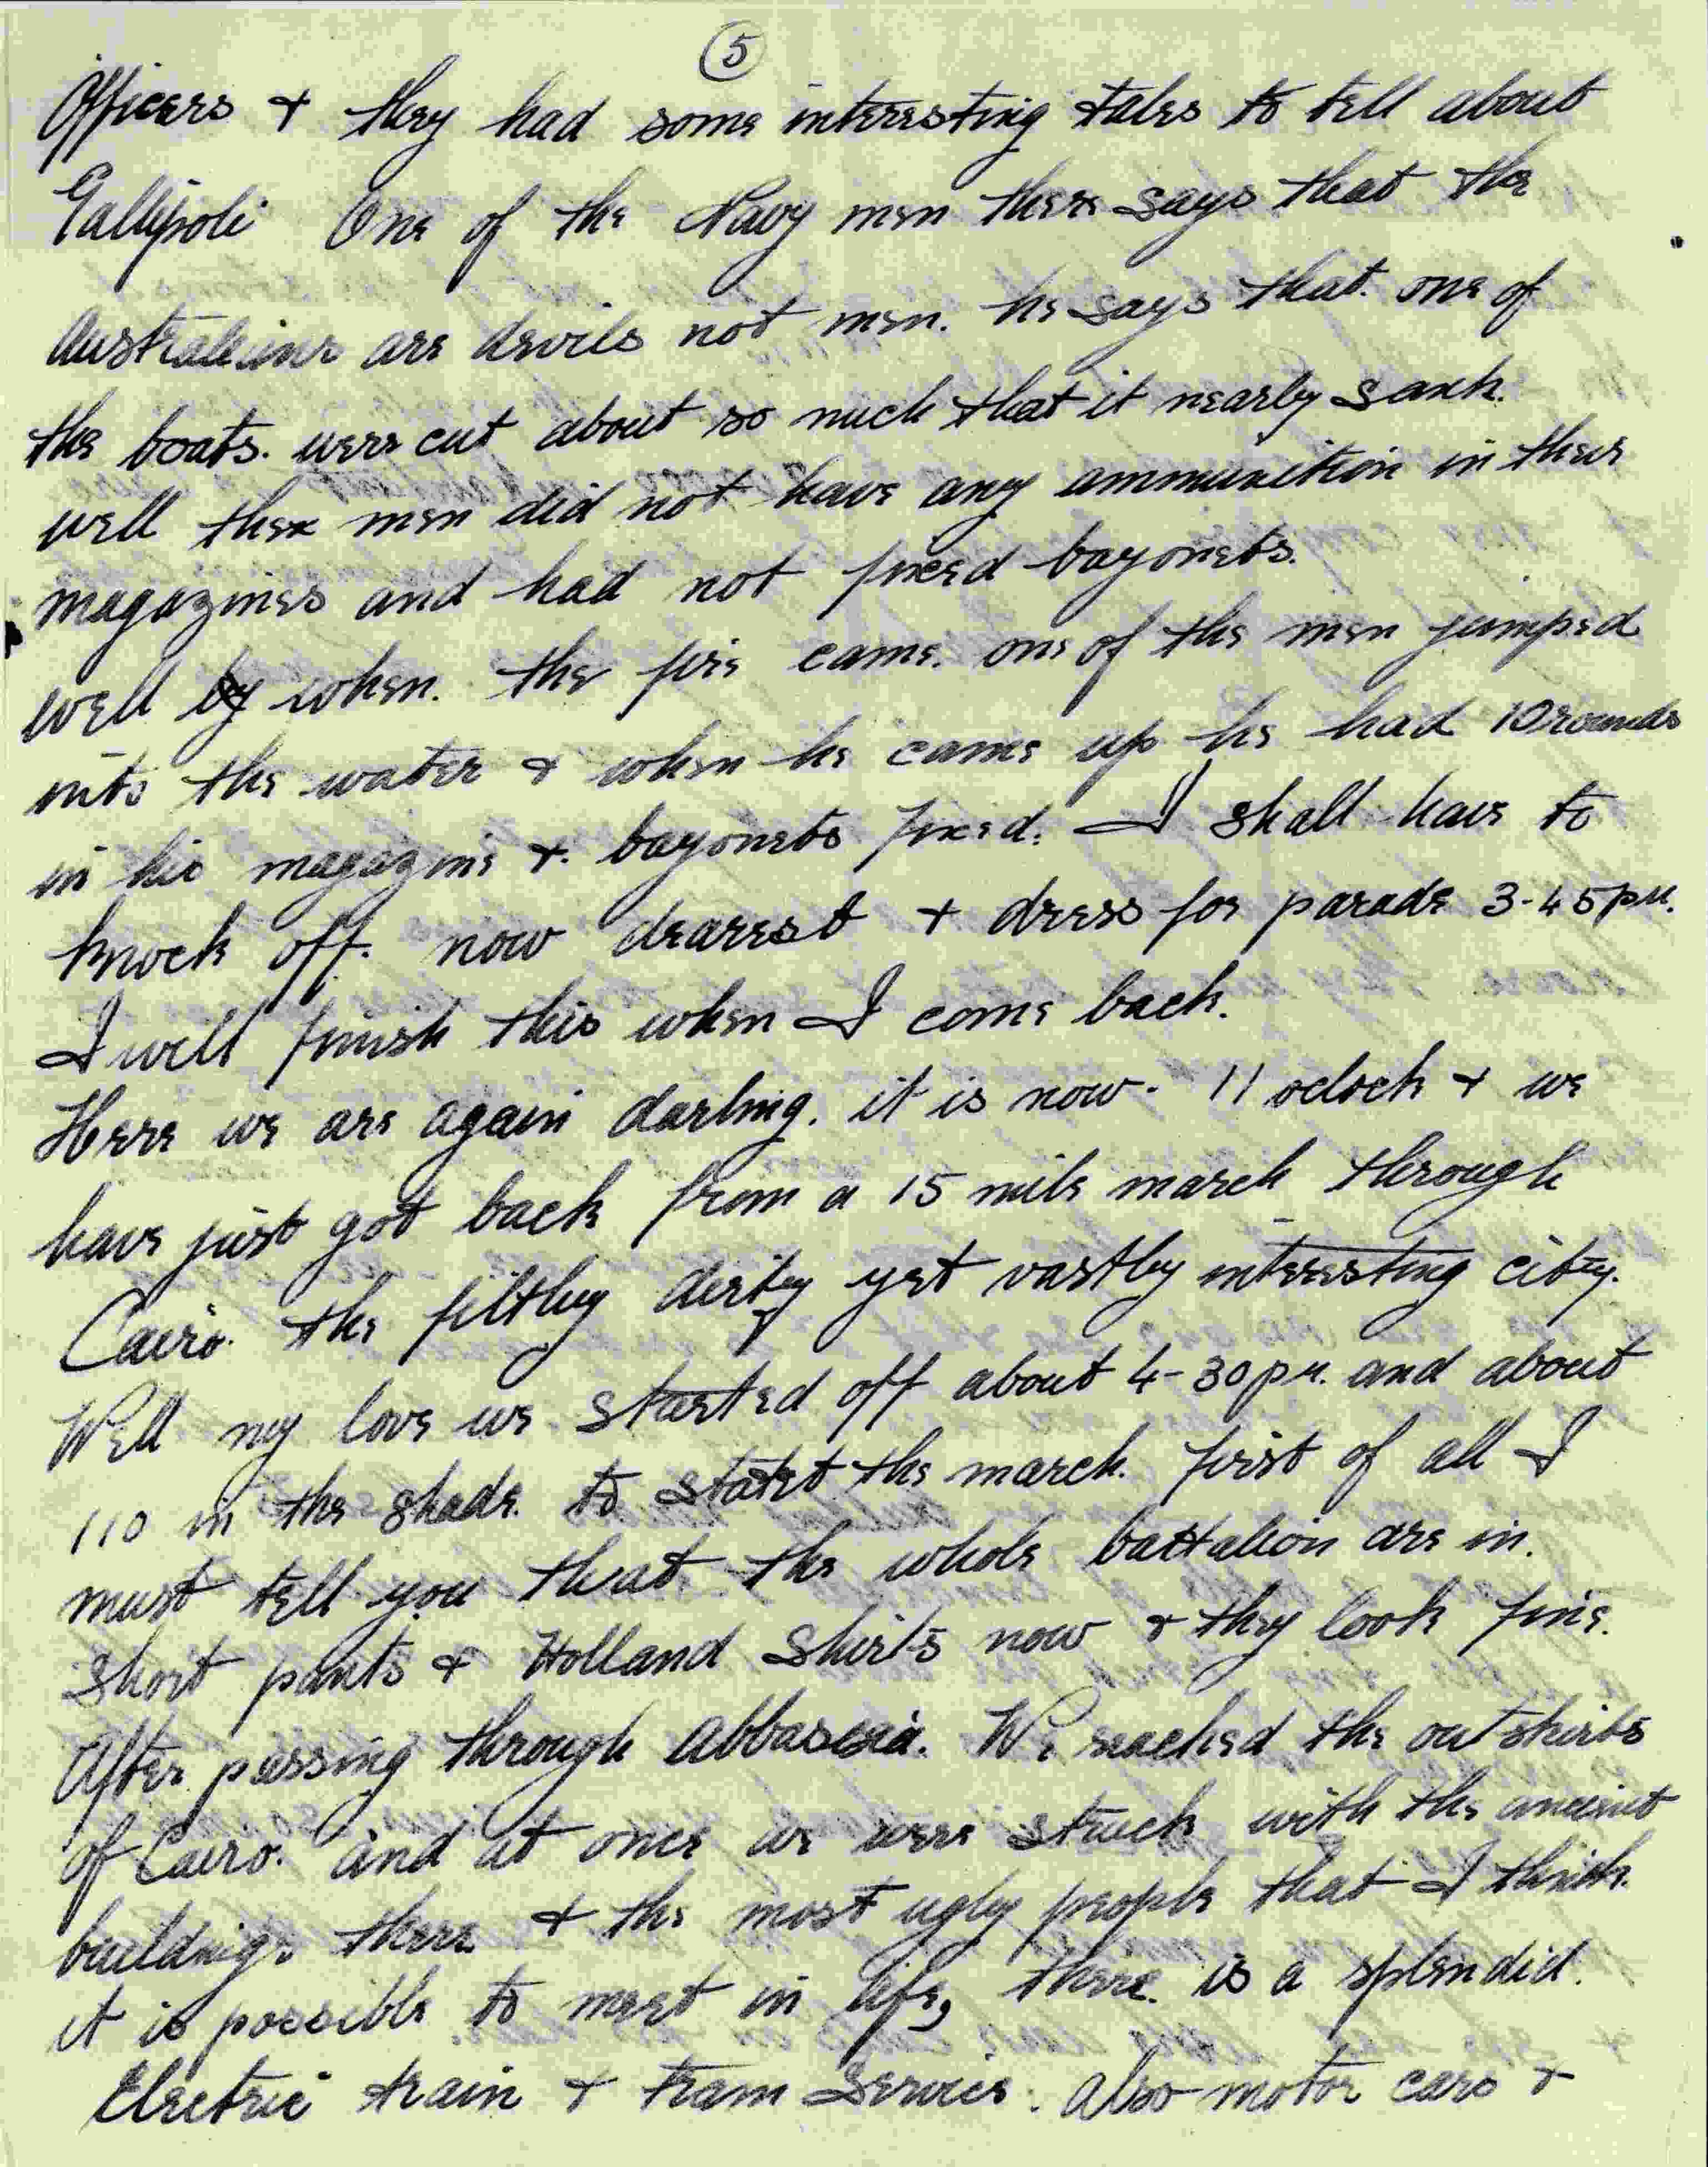 5
Officers & they had some interesting tales to tell about
Gallipoli One of the Navy men there says that the
Australians are devils not men. he says that one of
the boats. were cut about so much that it nearly sank.
well these men did not have any ammunition in their
magazines and had not fixed bayonets.
well by when. the fire came. one of the men jumped
into the water & when he came up he had 10 rounds
in his magazine &. bayonets fixed. I shall have to
knock off. now dearest & dress for parade 3-45 pm.
I will finish this when I come back.
Here we are again darling. it is now. 11 oclock & we
have just got back from a 15 mile march through
Cairo. the filthy dirty yet vastly interesting city.
Well my love we started off about 4-30 pm. and about
110 in the shade. to start the march. first of all I
must tell you that the whole battalion are in.
Short pants & Holland Shirts now & they look fine.
After passing through Abbassia. We reached the outskirts
of Cairo. and at once we were struck with the ancient
buildings there & the most ugly people that I think.
it is possible to meet in life, there. is a splendid.
Electric train & tram Service. also motor cars &